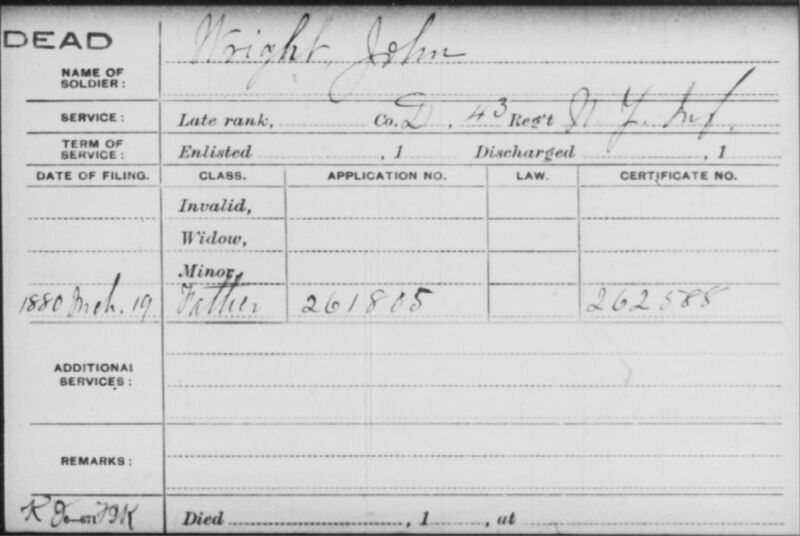 DEAD
Wright, John
NAME OF
SOLDIER:
SERVICE: Late rank, Co. D, 43 Reg't N. Y. Inf.
TERM OF
SERVICE: Enlisted , 1 Discharged , 1
DATE OF FILING. CLASS. APPLICATION NO. LAW. CERTIFICATE NO.
Invalid,
Widow,
Minor,
1880 Mch. 19 Father 261805 262588
ADDITIONAL
SERVICES:
REMARKS:
6—671
Died , 1 , at